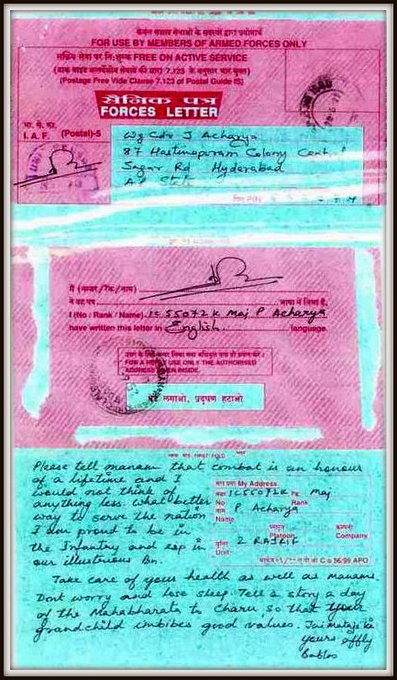 केवल सशस्त्र सेनाओं के सदस्यों द्वारा प्रयोगार्थ
FOR USE BY MEMBERS OF ARMED FORCES ONLY
सक्रिय सेवा पर निःशुल्क FREE ON ACTIVE SERVICE
(डाक गाइड की धारा 7.123 के अनुसार
(Postage Free Vide Clause 7.123 of Postal Guide IS)
सैनिक पत्र
FORCES LETTER
भा. से. फा.
I. A. F. (Postal)-5
Wg Cdr S Acharya
87 Hastinapuram Colony Central
Sagar Rd Hyderabad
A.P State
मैं (नम्बर/रैंक/नाम)
ने यह पत्र भाषा में लिखा है.
I (No / Rank / Name) IC 55072K Maj P Acharya
have written this letter in English. language.
FOR A HEAVIER USE ONLY THE AUTHORISED
ADDRESS INSIDE.
लगाओ, प्रदूषण हटाओ
FIRST FOLD
Please tell manam that combat is an honour
of a lifetime and I
would not think of
anything less. What better
way to serve the nation.
I am proud to be in
the Infantry and esp in
our illustrious Bn.
मेरा पता My Address
IC55072K Maj
No Rank
P. Acharya
Name
प्लाटून कम्पनी
Platoon Company
2 RAJRIF
Unit
C/o 56/99 APO
Take care of your health as well as manams.
Dont worry and lose sleep. Tell a story a day
of the Mahabharata to Charu so that your
grandchild imbibes good values. Jai mataji ki
yours affly
Babloo